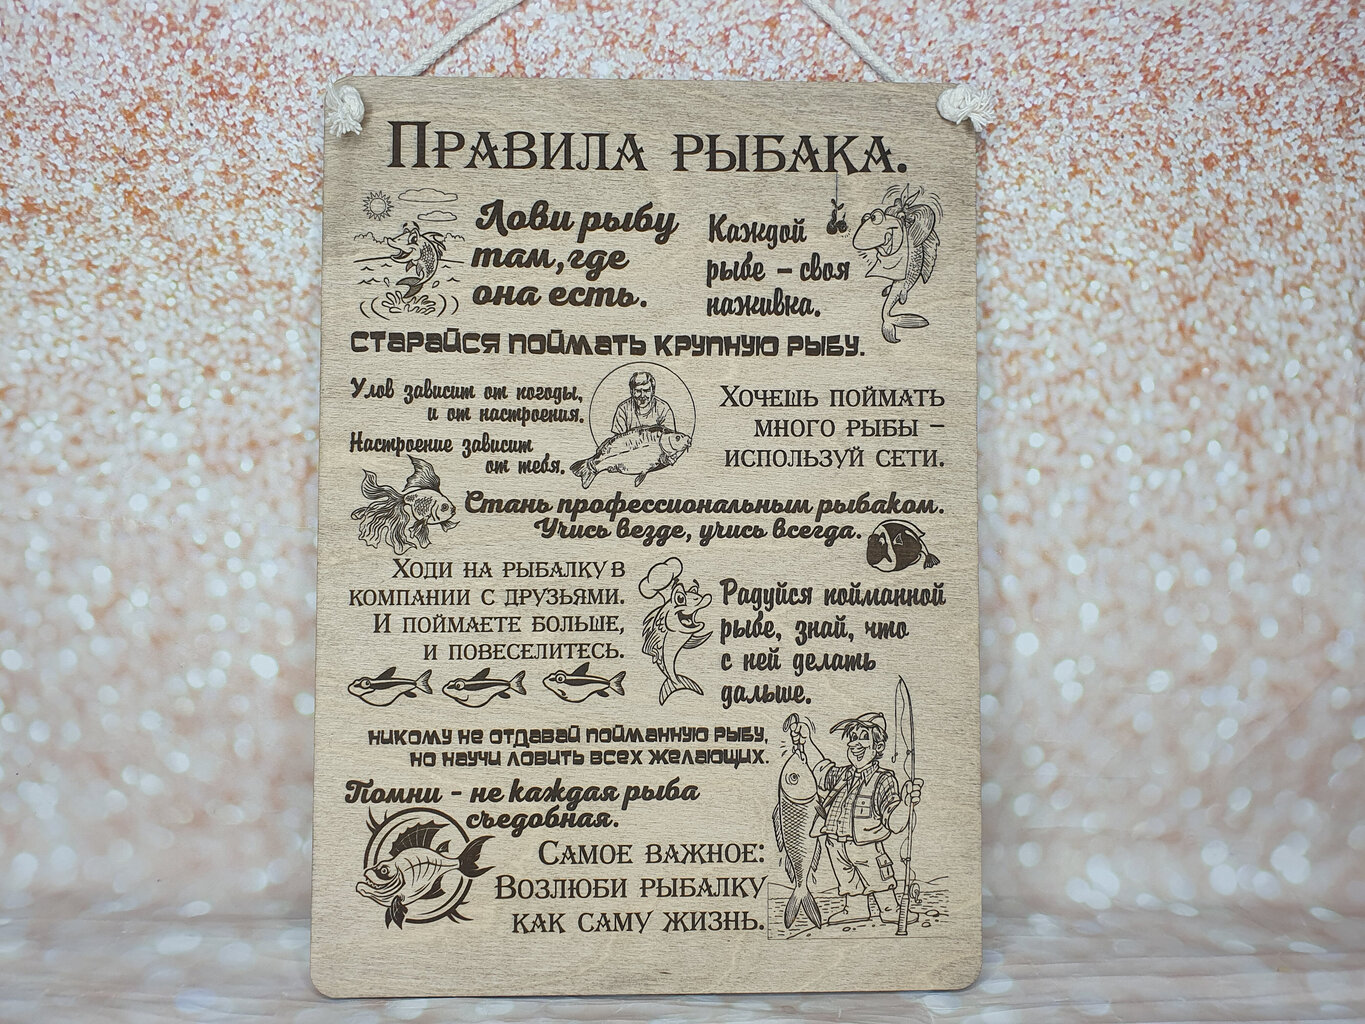 Правила рыбака.
Лови рыбу
там, где
она есть.
Каждой
рыбе – своя
наживка.
Старайся поймать крупную рыбу.
Улов зависит от погоды,
и от настроения.
Настроение зависит
от тебя.
Хочешь поймать
много рыбы –
используй сети.
Стань профессиональным рыбаком.
Учись везде, учись всегда.
Ходи на рыбалку в
компании с друзьями.
И поймаете больше,
и повеселитесь.
Радуйся пойманной
рыбе, знай, что
с ней делать
дальше.
Никому не отдавай пойманную рыбу,
но научи ловить всех желающих.
Помни - не каждая рыба
съедобная.
Самое важное:
Возлюби рыбалку
как саму жизнь.